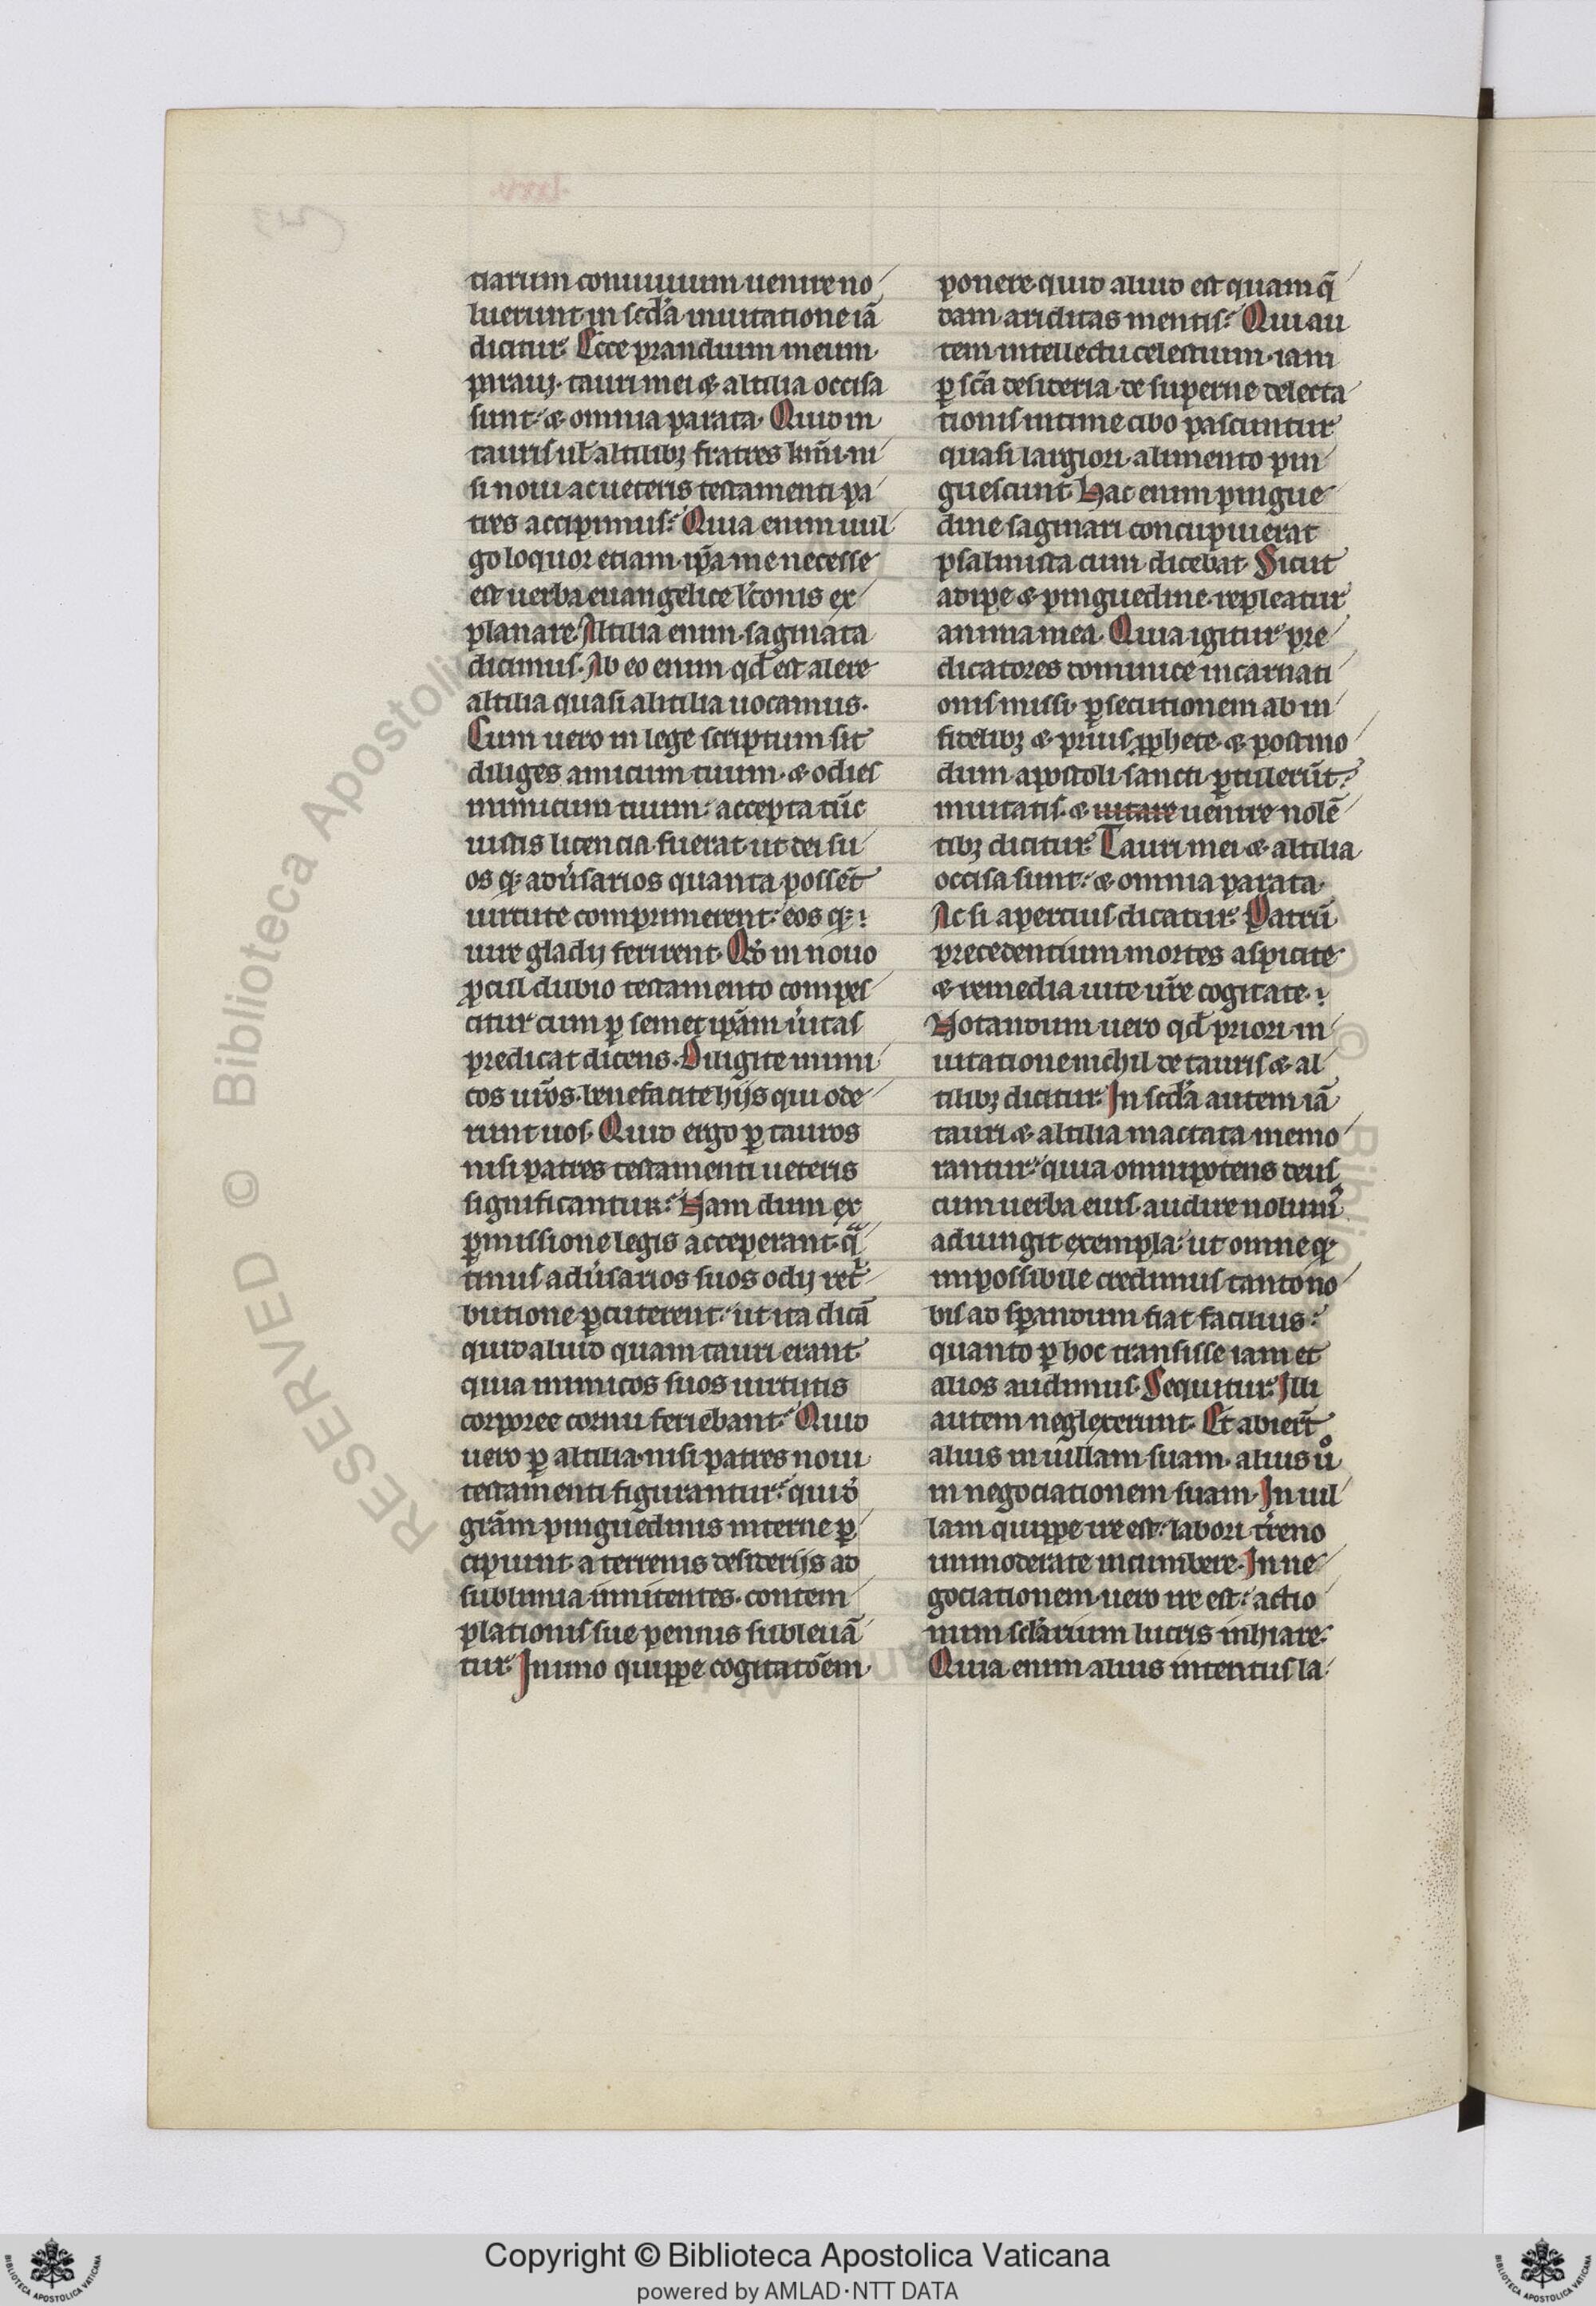 tiarum conuiuium uenire no
luerunt· in scd̄a inuitatione iā
dicitur. Ecce prandium meum·
p̄raui· tauri mei & altilia occisa
sunt· & omnia parata· Quid in
tauris ul̄ altilibꝫ fratres kmī· ni
si noui ac ueteris testamenti pa
tres accipimus? Quia enim uul
go loquor etiam· ip̄a me necesse
est uerba euangelice lc̄onis ex
planare. Altilia enim· saginata
dicimus. Ab eo enim qd̄ est alere
altilia quasi alitilia uocamus.
Cum uero in lege scriptum sit
diliges amicum tuum· & odies
inimicum tuum: accepta tūc
iustis licencia fuerat· ut dei su
os qꝫ adu̾sarios quanta possēt
uirtute comprimerent: eos qꝫ
iure gladij ferirent. Qd̄ in nouo
ꝓcul dubio testamento compes
citur cum ꝑ semet ip̄am u̾itas
predicat dicens. Diligite inimi
cos ur̄os· benefacite hijs qui ode
runt uos. Quid ergo ꝑ tauros
nisi patres testamenti ueteris
significantur? Nam dum ex
ꝑmissione legis acceperant· qͣ
tinus adu̾sarios suos odij ret̾
butione ꝑcuterent: ut ita dicā
quid aliud quam tauri erant
quia inimicos suos uirtutis
corporee cornu feriebant? Quid
uero ꝑ altilia· nisi patres noui
testamenti figurantur? qui dͫ
gr̄am pinguedinis interne ꝑ
cipiunt· a terrenis desiderijs ad
sublimia innitentes· contem
plationis sue pennis subleuā
tur. In imo quippe cogitatōem
ponere· quid aliud est quam q̄
dam· ariditas mentis? Qui au
tem intellectu celestium· iam
ꝑ sc̄a desideria· de superne delecta
tionis intime cibo pascuntur
quasi largiori· alimento pin
guescunt. Hac enim pingue
dine saginari concupiuerat
psalmista cum dicebat. Sicut
adipe & pinguedine repleatur
anima mea. Quia igitur pre
dicatores dominice incarnati
onis missi· ꝑsecutionem ab in
fidelibꝫ & prius ꝓphete· & postmo
dum apostoli sancti ꝑtulerūt:
inuitatis· & uitare uenire nolē
tibꝫ dicitur. Tauri mei & altilia
occisa sunt: & omnia parata.
Ac si apertius dicatur. Patrū
precedentium mortes aspicite
& remedia uite ur̄e cogitate.
Notandum uero qd̄ priori· in
uitatione nichil de tauris & al
tilibꝫ dicitur. In scd̄a autem iā
tauri & altilia mactata memo
rantur: quia omnipotens deus
cum uerba eius audire nolumꝰ
adiungit exempla: ut omne qꝫ
impossibile credimus tanto no
bis ad sꝑandum fiat facilius:
quanto ꝑ hoc transisse iam et
alios audimus. Sequitur. Illi
autem neglexerunt. Et abierūt
alius in uillam suam· alius uͦ
in negociationem suam. In uil
lam quippe ire est: labori tr̄eno
immoderate incumbere. In ne
gociationem uero ire est: actio
num scl̄arium lucris inhiare.
Quia enim alius intentus la